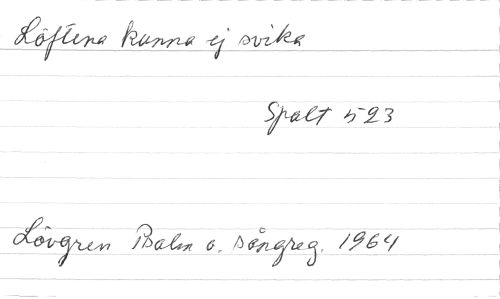 Löftena kunna ej svika
Spalt 523
Lövgren Psalm o. sångreg. 1964